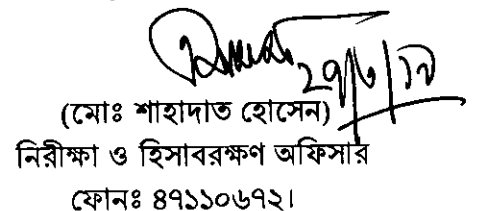 (মোঃ শাহাদাত হোসেন)
নিরীক্ষা ও হিসাবরক্ষণ অফিসার
ফোনঃ ৪৭১১০৬৭২।